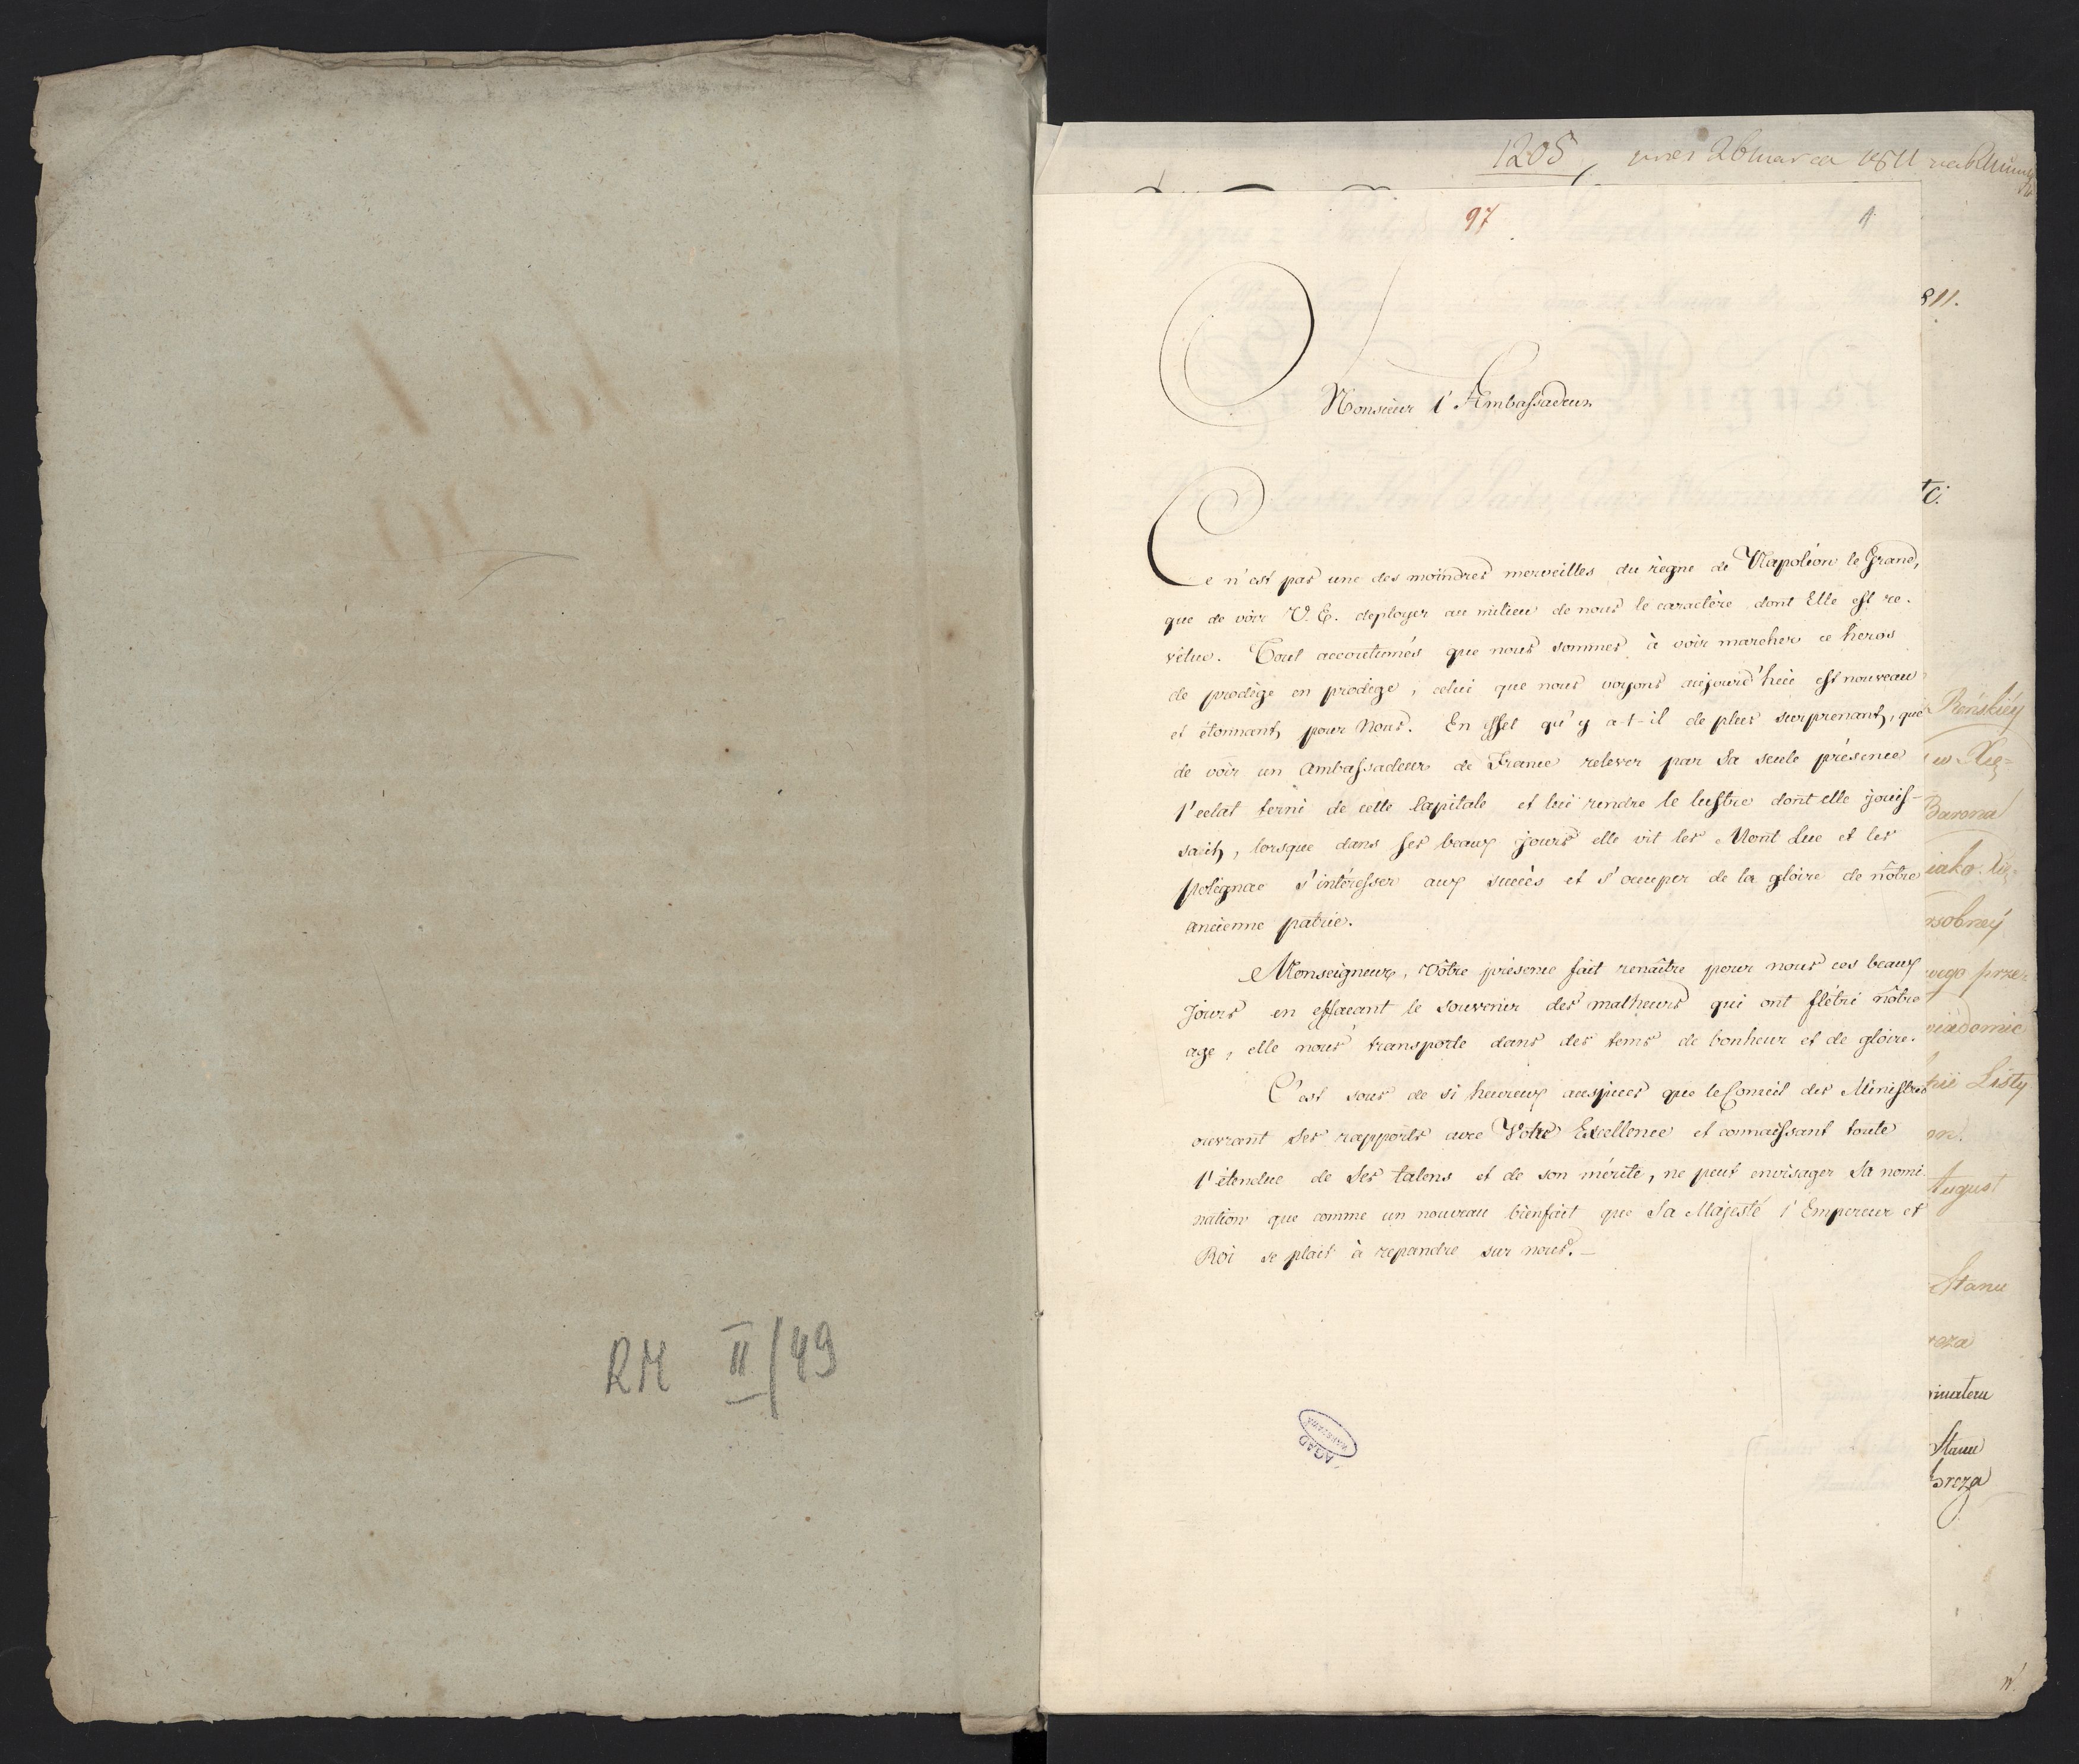 RM II/49
1205
26 marca 1811
97
1
Monsieur l'Ambassadeur
Ce n'est pas une des moindres merveilles du règne de Napoléon le Grand,
que de voir V. E. deployer au milieu de nous le caractère dont Elle est re-
vêtue. Tout accoutumés que nous sommes à voir marcher ce heros
de prodige en prodige, celui que nous voyons aujourd'hui est nouveau
et étonnant pour Nous. En effet qu'y a-t-il de plus surprenant, que
de voir un Ambassadeur de France relever par Sa seule présence
l'eclat terni de cette Capitale et lui rendre le lustre dont elle jouis-
sait, lorsque dans ses beaux jours elle vit les Mont Luc et les
polignac s'intéresser aux succès et s'occuper de la gloire de nôtre
ancienne patrie.
Monseigneur, Vôtre présence fait renaître pour nous ces beaux
jours en effacant le souvenir des malheurs qui ont flétri nôtre
age, elle nous transporte dans des tems de bonheur et de gloire.
C'est sous de si heureux auspices que le Conseil des Ministres
ouvrant Ses rapports avec Votre Excellence et connaissant toute
l'étendue de Ses talens et de son mérite, ne peut envisager Sa nomi
nation que comme un nouveau bienfait que Sa Majesté l'Empereur et
Roi se plait à repandre sur nous. —
AGAD
WARSZAWA
811.
Reńskiéy
Barona
iako
osobnéy
wego prze=
wiadomie
Listy
August
Stanu
reza
Stanu
Breza